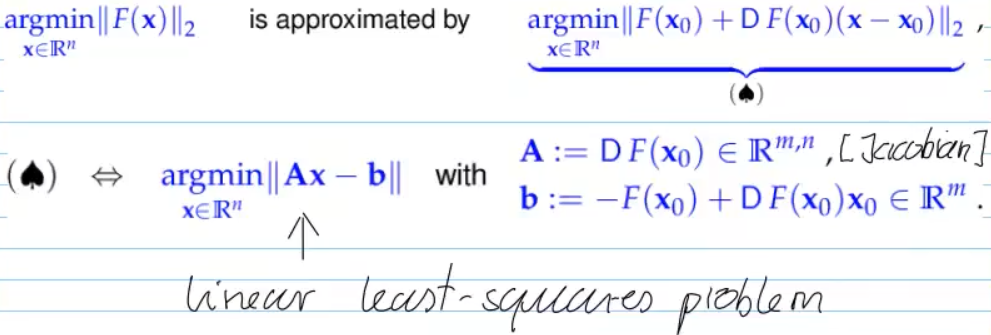 argmin‖F(x)‖₂ is approximated by argmin‖F(x₀) + D F(x₀)(x − x₀)‖₂ ,
x∈ℝⁿ x∈ℝⁿ
(♠)
(♠) ⇔ argmin‖Ax − b‖ with A := D F(x₀) ∈ ℝᵐ,ⁿ , [Jacobian]
x∈ℝⁿ b := −F(x₀) + D F(x₀)x₀ ∈ ℝᵐ .
linear least-squares problem